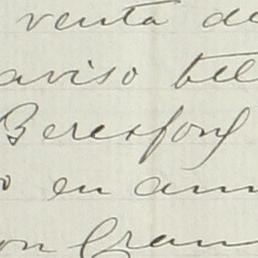 venta de
aviso tel
Beresford
en
Gran